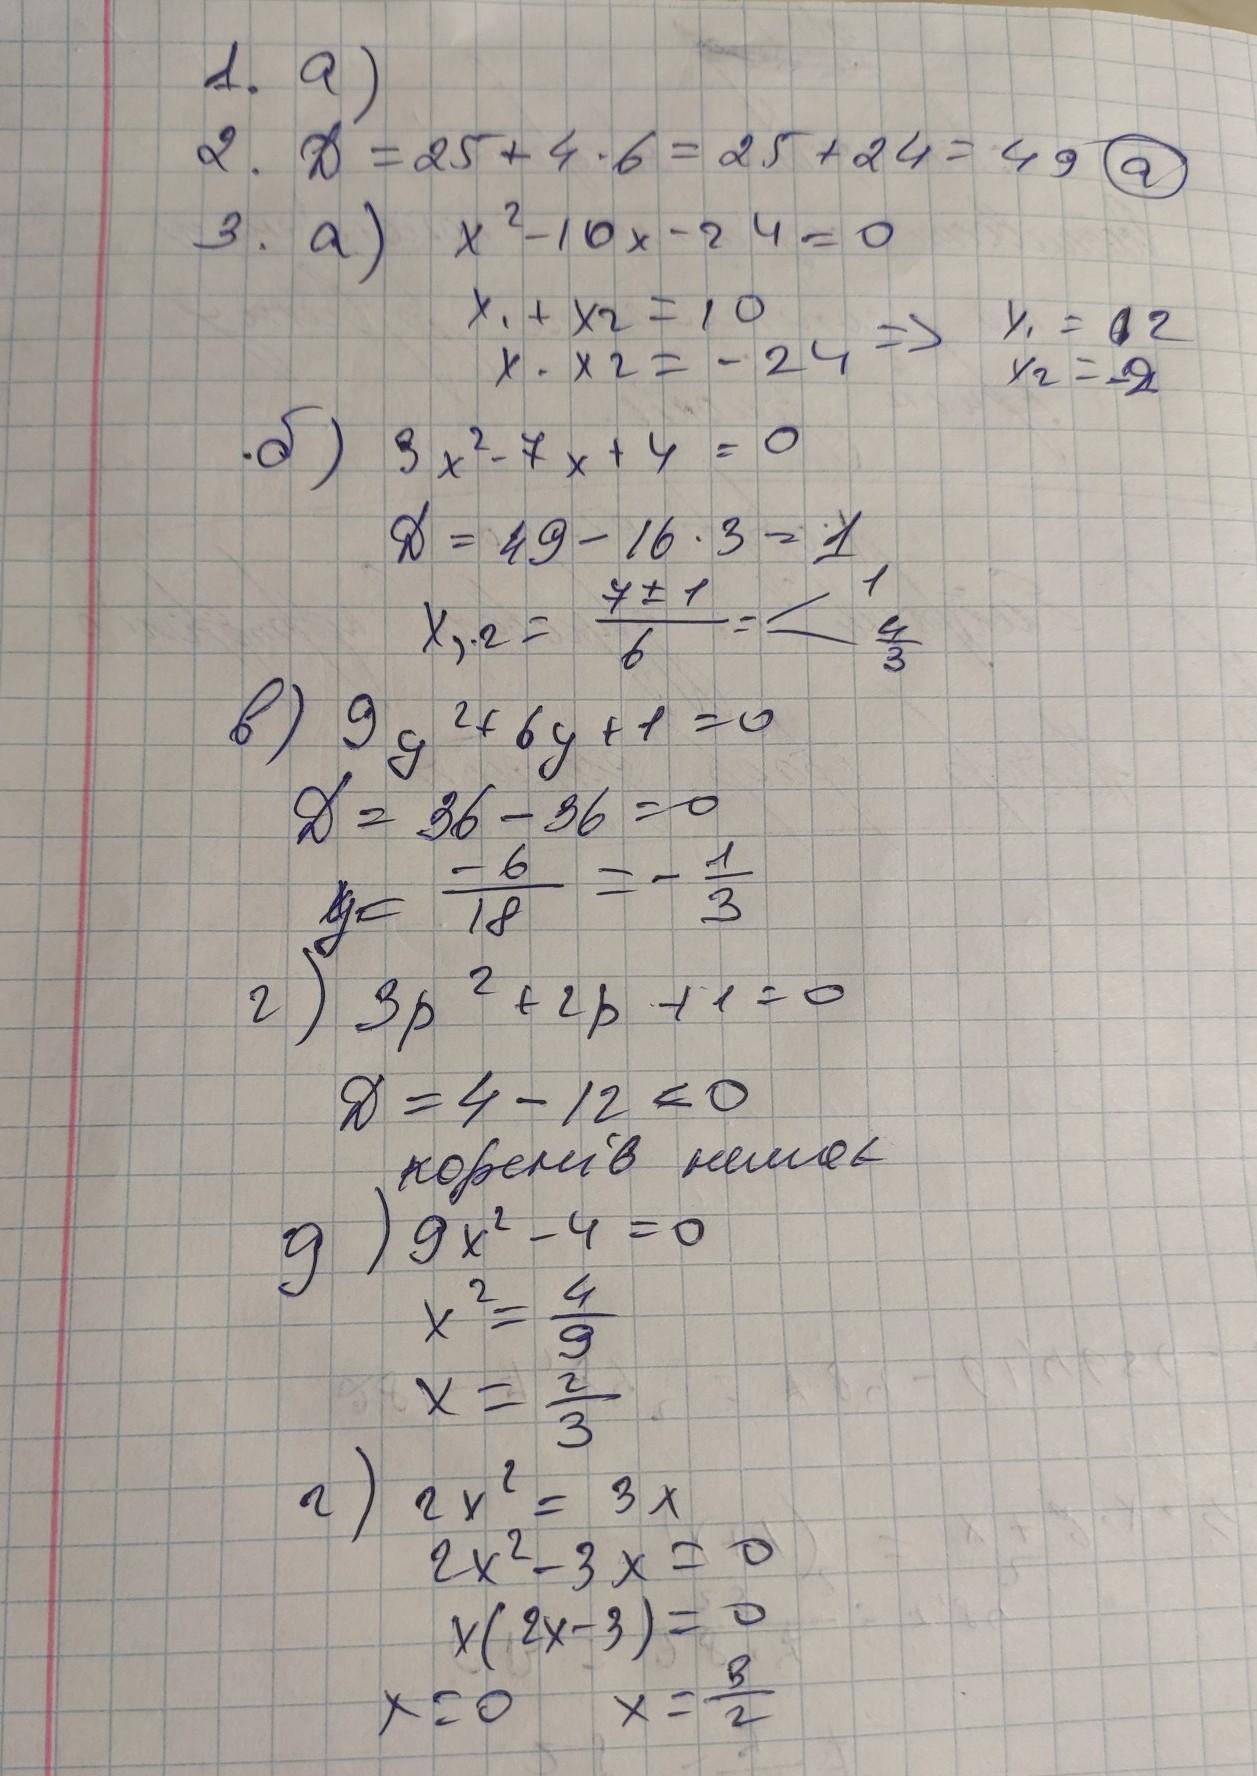 1. а)
2. D = 25 + 4 · 6 = 25 + 24 = 49 (а)
3. а) x² - 10x - 24 = 0
x₁ + x₂ = 10
x · x₂ = -24 => x₁ = 12
x₂ = -2
б) 3x² - 7x + 4 = 0
D = 49 - 16 · 3 = 1
x₁,₂ = (7 ± 1)/6 = < 1
4/3
в) 9y² + 6y + 1 = 0
D = 36 - 36 = 0
y = -6/18 = -1/3
г) 3p² + 2p + 1 = 0
D = 4 - 12 < 0
коренів немає
д) 9x² - 4 = 0
x² = 4/9
x = 2/3
г) 2x² = 3x
2x² - 3x = 0
x(2x - 3) = 0
x = 0 x = 3/2